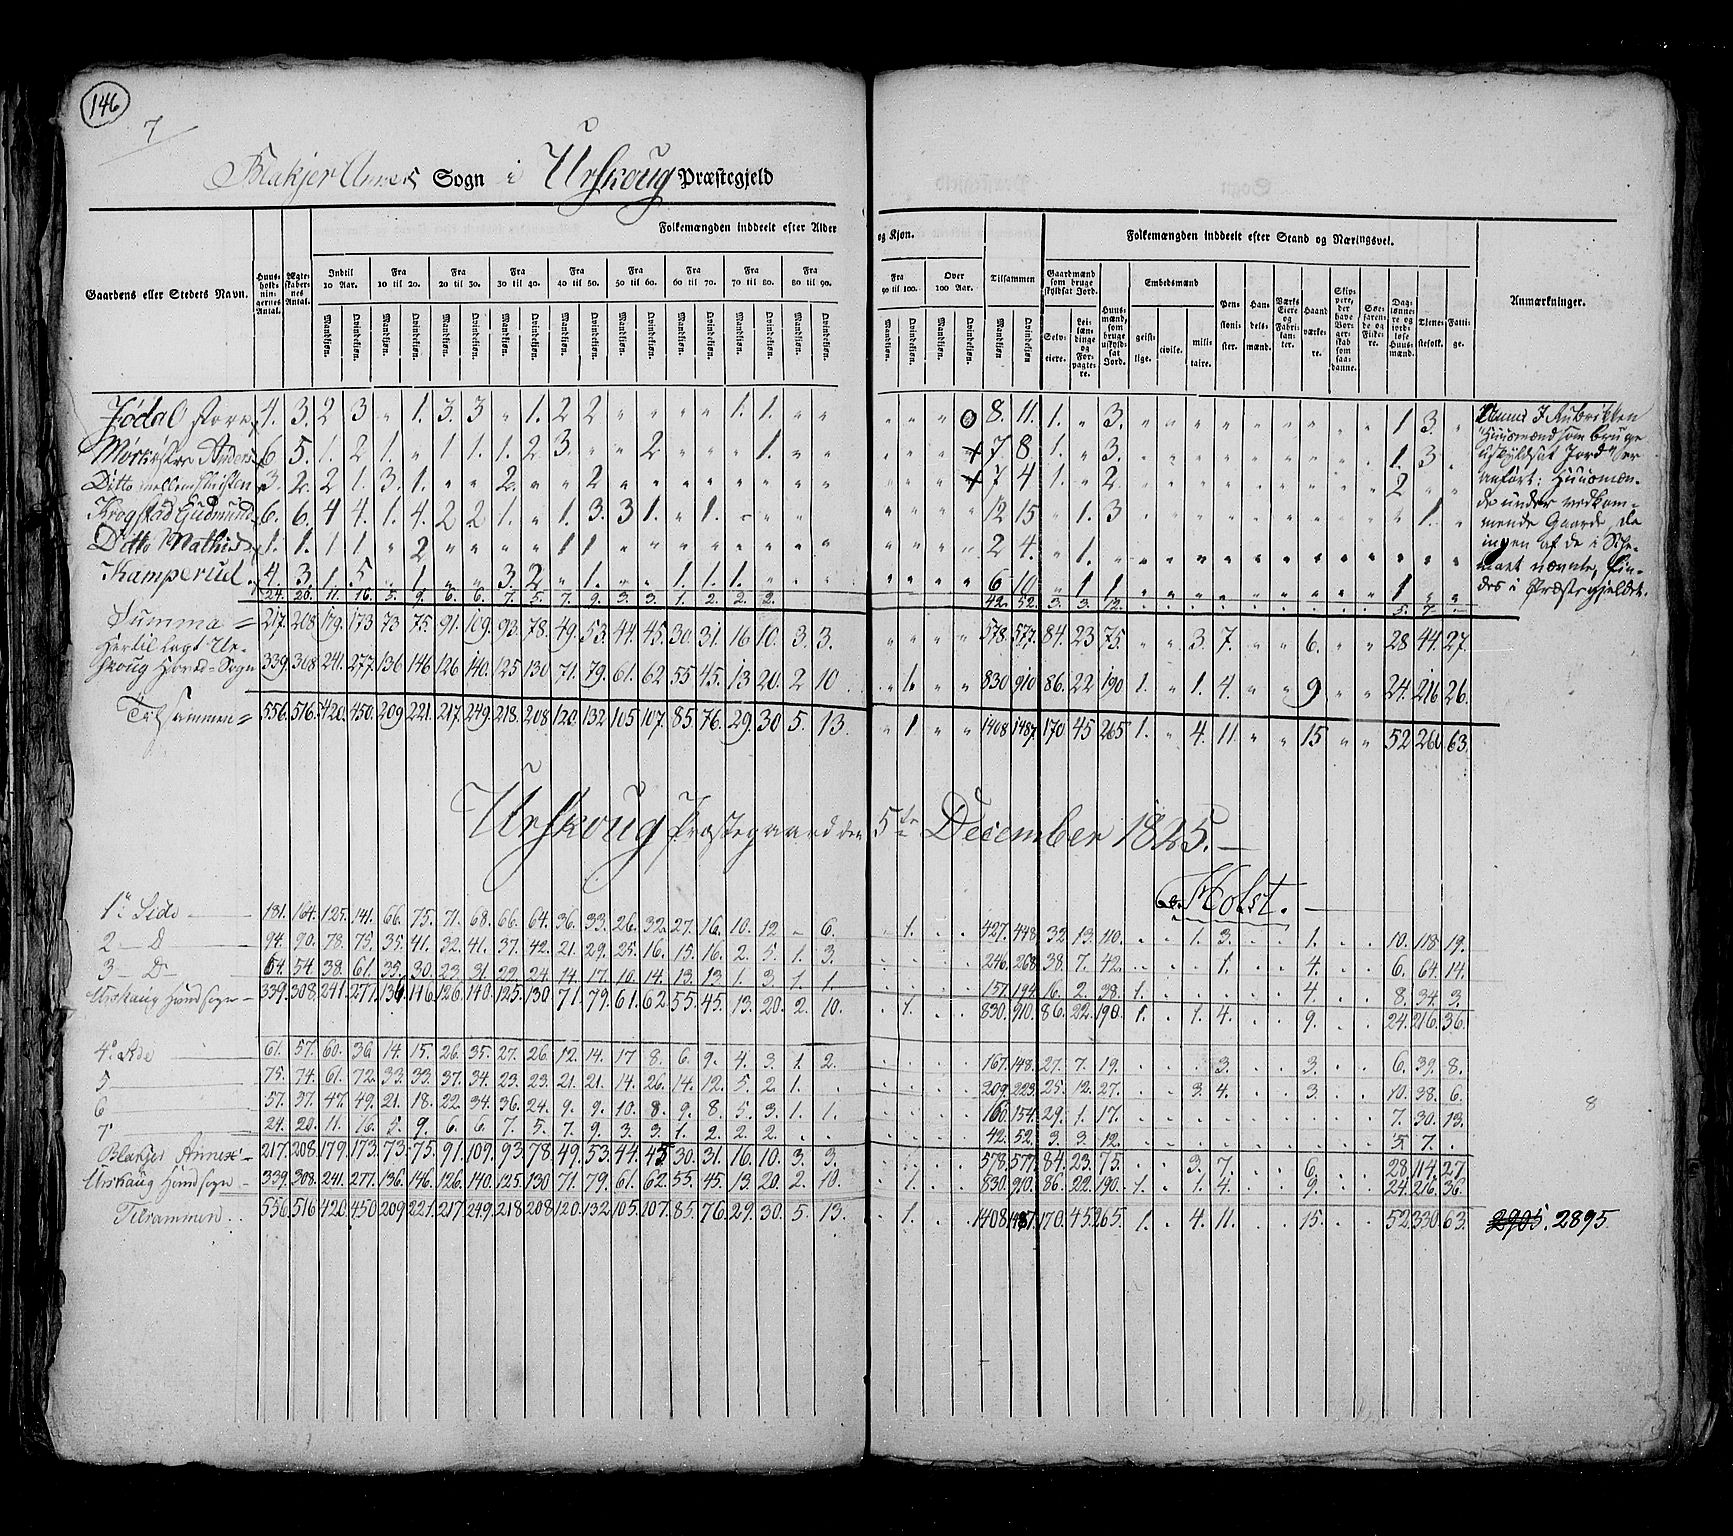 146
7
Blakjer Annex Sogn i Urskoug Præstegjeld
Folkemængden inddeelt efter Alder og Kjøn. Folkemængden inddeelt efter Stand og Næringsvei.
Gaardens eller Stedets Navn. Huusholdningernes Antal. Ægteskabernes Antal. Indtil 10 Aar. Fra 10 til 20. Fra 20 til 30. Fra 30 til 40. Fra 40 til 50. Fra 50 til 60. Fra 60 til 70. Fra 70 til 80. Fra 80 til 90. Fra 90 til 100. Over 100 Aar. Tilsammen Gaardmænd som bruge skyldsat Jord. Huusmænd, som bruge uskyldsat Jord. Embedsmænd Pensionister. Handelsmænd. Værks Eiere og Fabrikanter. Haandværkere. Skippere, der have Borgerskab som saadanne. Søefarende og Fiskere. Daglønnere og jordløse Huusmænd. Tjenestefolk. Fattige. Anmærkninger.
Mandkjøn. Qvindekjøn. Selveiere. Leilændinge og Forpagtere. geistlige. civile. militaire.
Jødal store 4. 3. 2 3 " 1. 3. 3 " 1. 2 2 " " " " 1. 1. " " " " " 8. 11. 1. " 3. " " " " " " " " " 1 3. "
Mørkøskov Anders 6 5. 1. 2 1. " 1 1. 1. 2 3. " " 2 " " " 1. " " " " " 7 8. 1. " 3. " " " " " " " " " 1. 3 "
Ditto mellem 3. 2. 2 1. 3. 1. " " 2. " " 2 " " " " " " " " " " " 7 4 1. " 2 " " " " " " " " " 2 " "
Krogstad Gudmund 6. 6. 4 4. 1. 4. 2 2 1. " 1. 3. 3 1. " 1. " " " " " " " 12 15 " 1. 3 " " " " " " " " " " 1. "
Ditto Mathis 1. 1. 1 1 " 2 " " " " 1 1 " " " " " " " " " " " 2 4. " 1. " " " " " " " " " " " " "
Kamperud 4. 3. 1. 5 " 1. " " 3. 2 " 1. " " 1. 1. 1. " " " " " " 6 10 " 1 1. " " " " " " " " " 1 " "
24. 20. 11. 16. 5. 9. 6. 6. 7. 5. 7. 9. 3. 3. 1. 2. 2. 2. 42. 52. 3. 3. 12. 5. 7.
Summa = 217. 208 179. 173 73 75. 91. 109. 93. 78. 49. 53. 44. 45. 30. 31. 16 10. 3. 3. " " " " 578. 577. 84. 23 75. " " 3. 7. " " 6. " " 28 44. 27.
Hertil lagt Urskoug Hoved-Sogn 339. 308. 241. 277. 136 146 126 140. 125 130 71. 79. 61. 62 55 45. 13 20. 2 10 " 1. " " 830 910 86. 22 190 1. " 1. 4. " " 9 " " 24. 216 26.
Tilsammen = 556. 516. 420. 450. 209 221. 217. 249. 218. 208. 120. 132 105 107. 85 76. 29. 30 5. 13. " 1 " " 1408 1487. 170 45 265 1. " 4. 11. " " 15 " " 52 260 63.
Huusmænd som bruge
uskyldsat Jord" er
anført: Huusmæn-
de under vedkom-
mende Gaarde, da
ingen af de i Sche-
maet nævnte, fin-
des i Præstegjeldet.
Urskoug Præstegaard den 5te December 1825.
Holst.
1e Side 181. 164. 125. 141. 66. 75. 71. 68. 66. 64. 36. 33. 26. 32. 27. 16. 10. 12. 6. 1. 427. 448. 32. 13. 110. 1. 3. 1. 10. 118. 19.
2 D 94. 90. 78. 75. 35. 41. 32. 41. 37. 42. 21. 29. 25. 16. 15. 16. 2. 5. 1. 3. 246. 268. 38. 7. 42. 1. 4. 6. 64. 14.
3 D 64. 54. 38. 61. 35. 30. 23. 31. 22. 24. 14. 17. 10. 14. 13. 13. 1. 3. 1. 1. 157. 194. 16. 2. 38. 1. 4. 8. 34. 3.
Urskoug Hovedsogn 339. 308. 241. 277. 136. 146. 126. 140. 125. 130 71. 79. 61. 62. 55. 45. 13. 20. 2. 10. 1. 830. 910. 86. 22. 190. 1. 1. 4. 9. 24. 216. 36.
4e Side 61. 57. 60. 36. 14. 15. 26. 35. 27. 26. 12. 14. 17 8. 6. 9. 4. 3. 1. 2. 167. 148. 27. 7. 19. 3. 3. 6. 39. 8.
5 75. 74. 61. 72. 33. 33. 37. 34. 23. 23. 21. 21. 14. 26. 14. 12. 5. 2. 1. 209. 223. 25. 12. 27. 3. 4. 3. 10. 38. 6.
6 57. 57. 47. 49. 21. 18. 22. 34. 36. 24. 9. 9. 10. 8. 9. 8. 5. 3. 1. 1. 160. 154. 29. 1. 17. 7. 30. 13.
7 24. 20. 11. 16. 5. 9. 6. 6. 7. 5. 7. 9. 3. 3. 1. 2. 2. 2. 42. 52. 3. 3. 12. 5 7.
Blakjer Annex 217. 208. 179. 173. 73. 75. 91. 109. 93 78 49. 53. 44. 45 30. 31. 16. 10. 3. 3. 578. 577. 84. 23. 75. 3. 7. 6. 28 114 27
Urskoug Hovedsogn 339. 308. 241. 277. 136. 146. 126. 140. 125. 130 71. 79. 61. 62. 55. 45. 13 20. 2. 10. 1. 830. 910. 86. 22. 190. 1. 1. 4. 9. 24. 216. 36.
Tilsammen 556. 516 420. 450 209. 221. 217. 249. 218 208. 120. 132 105. 107. 85. 76. 29. 30. 5. 13. 1. 1408. 1487. 170. 45. 265. 1. 4. 11. 15. 52. 330. 63. 2905. 2895.
8